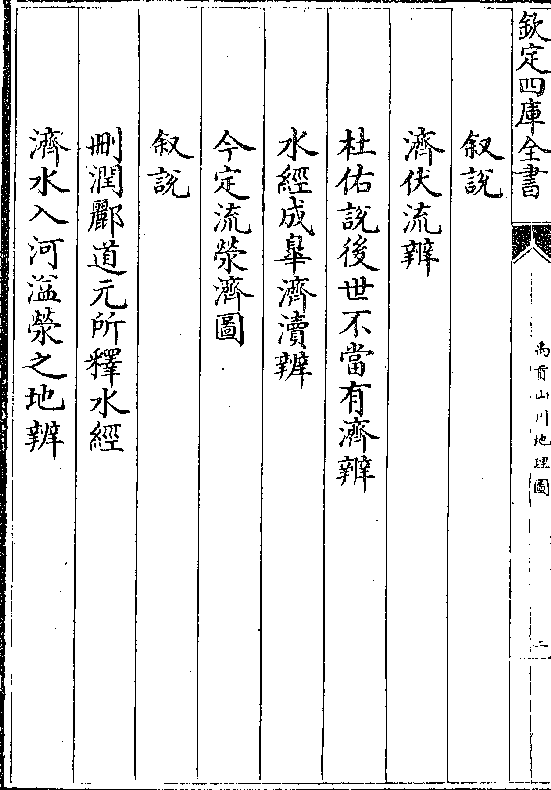 欽定四庫全書
禹貢山川地理圖
二
叙説
濟伏流辨
杜佑説後世不當有濟辨
水經成臯濟瀆辨
今定流滎濟圖
叙説
刪潤酈道元所釋水經
濟水入河溢滎之地辨